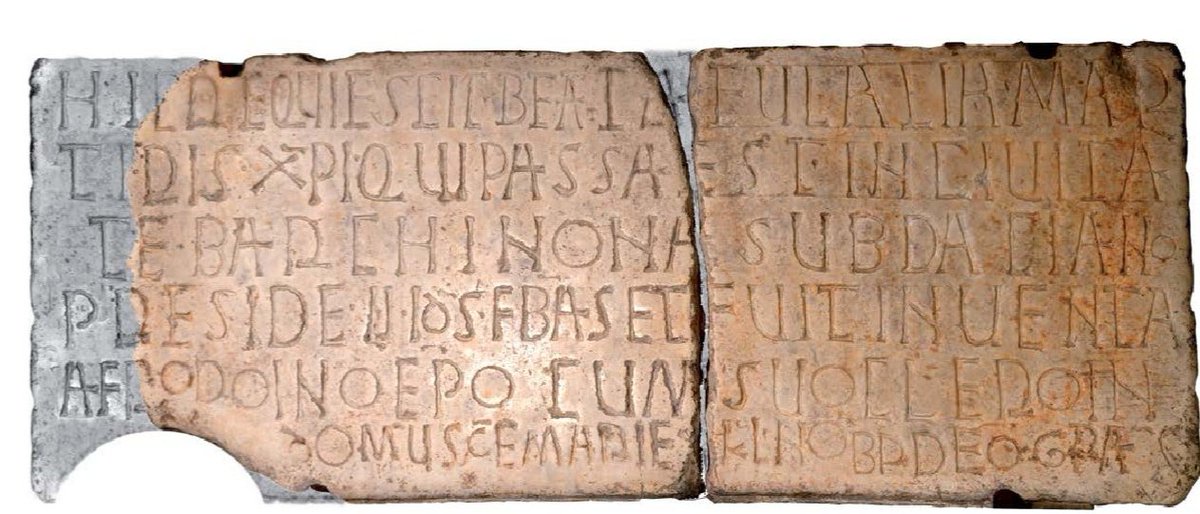 HIC REQUIESCIT·BEATA EULALIA·MAR
TIRIS XPI·QUI PASSA EST IN CIUITA
TE·BARCHINONA SUB DACIANO
PRESIDE II IDS·FBRS ET FUIT INUENTA
A·FRODOINO EPO CUM SUO CLERO IN
DOMUS SCE MARIE KL NOBR DEO·GRAS